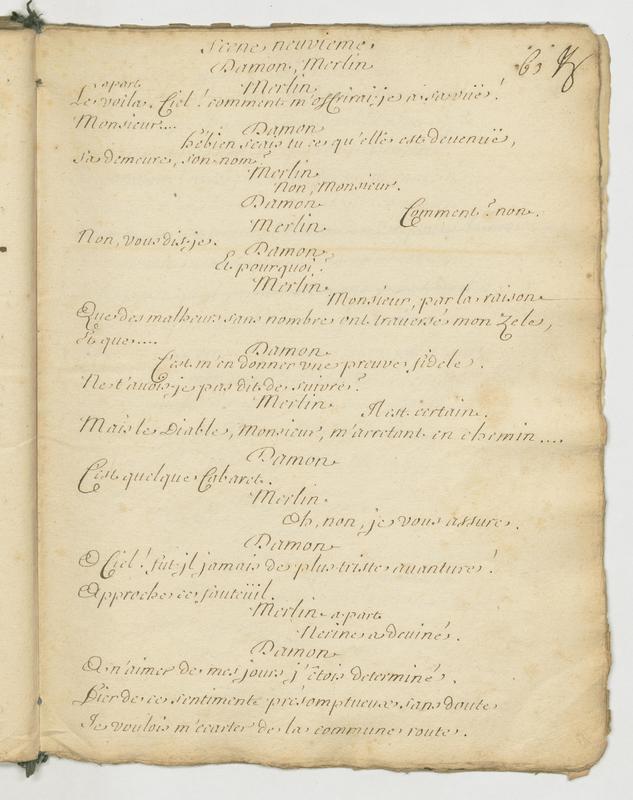 Scene neuvieme.
63
Damon, Merlin
Merlin
apart
Le voila. Ciel! comment m'offrirai-je a sa vuë!
Monsieur....
Damon
hébien scais tu ce qu'elle est devenuë,
Sa demeure, son nom?
Merlin
Non, Monsieur.
Damon
Comment? non.
Merlin
Non, vous dis-je.
Damon
Et pourquoi?
Merlin
Monsieur, par la raison
Que des malheurs sans nombre ont traversé mon Zele,
Et que....
Damon
C'est m'en donner une preuve fidele.
Ne t'avois-je pas dit de suivre?
Merlin
Il est certain.
Mais le Diable, Monsieur, m'arretant en chemin....
Damon
C'est quelque Cabaret.
Merlin
Oh, non, je vous assure.
Damon
O Ciel! fut-jl jamais de plus triste avanture!
Approche ce fauteüil.
Merlin apart
Nerine a deviné.
Damon
A n'aimer de mes jours j'étois determiné.
Fier de ce sentiment présomptueux sans doute
Je voulois m'ecarter de la commune route.